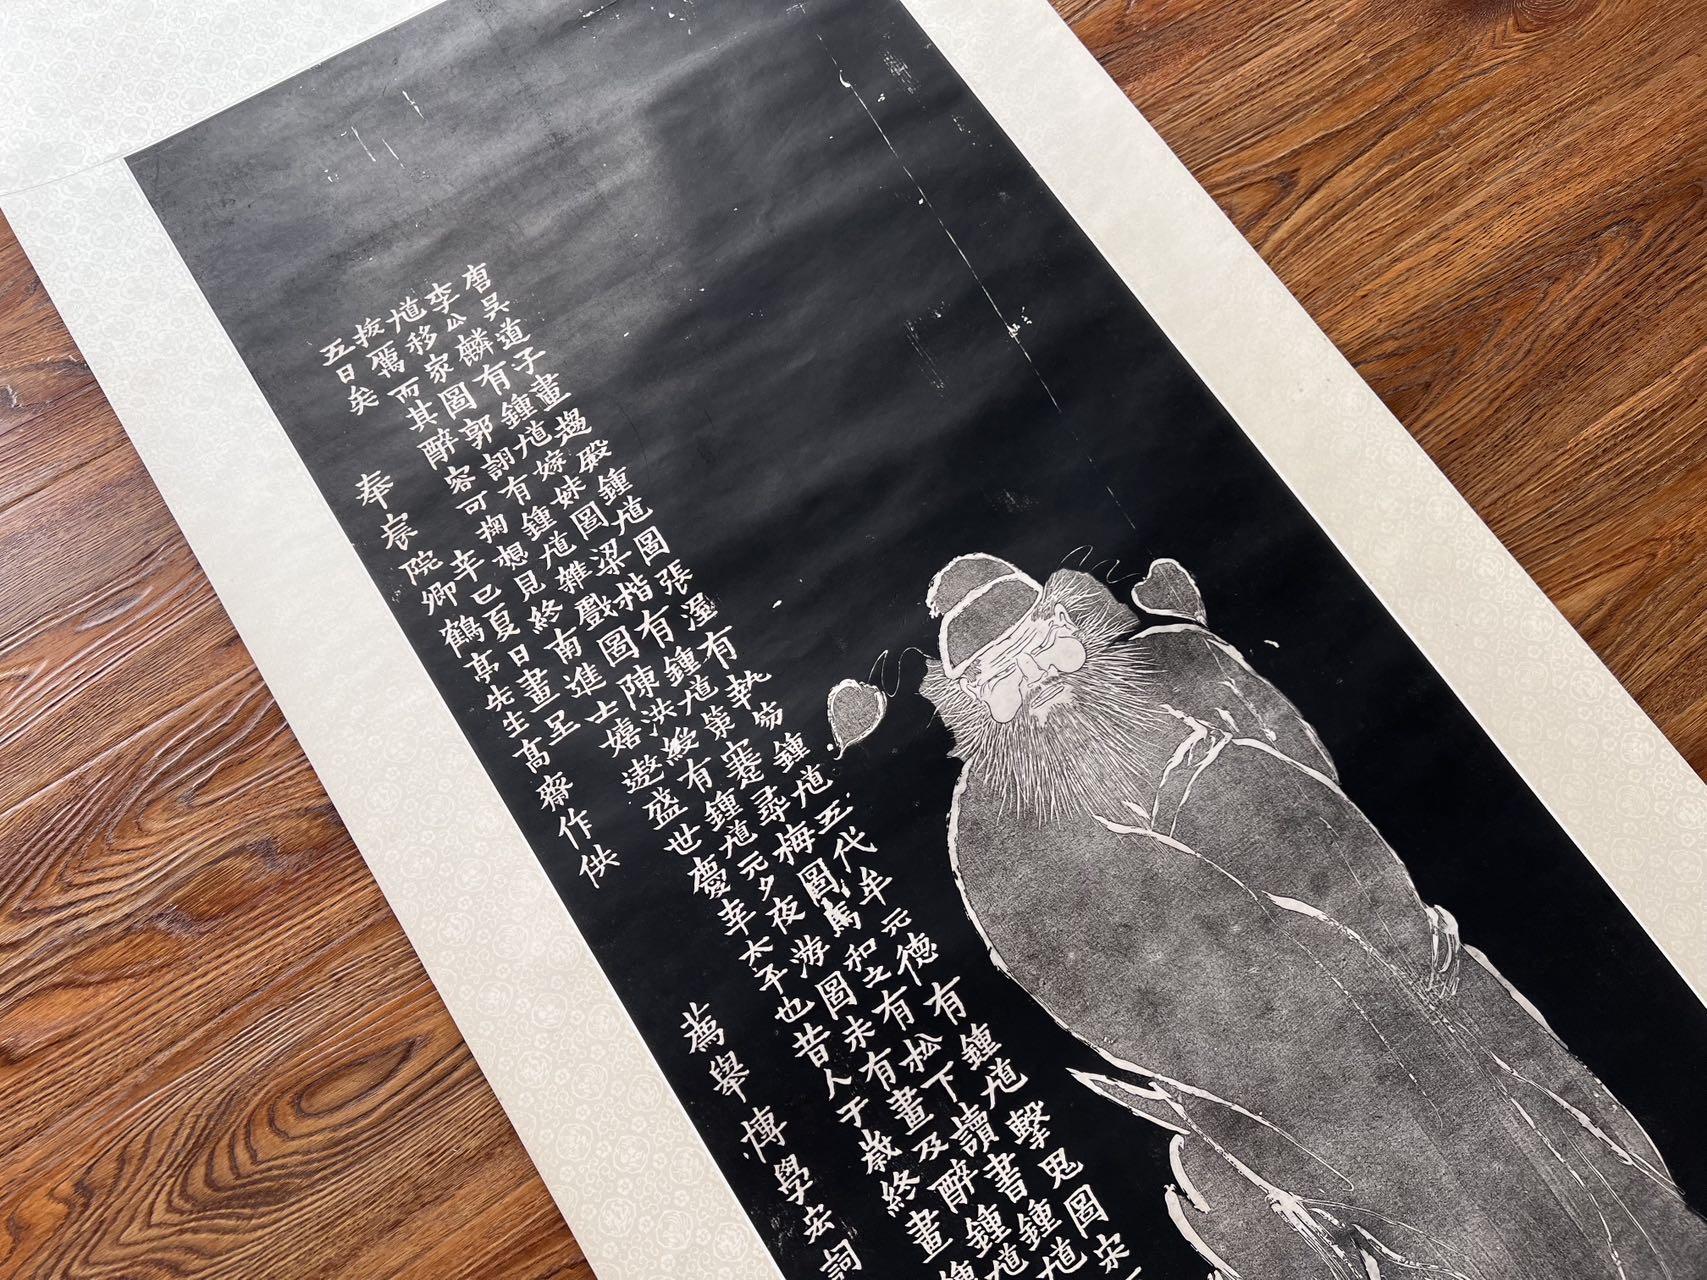 唐吳道子畫趨殿鍾馗圖張渥有執笏鍾馗五代牟元德有鍾馗擊鬼圖宋
李公麟有鍾馗嫁妹圖梁楷有鍾馗策蹇尋梅圖馬和之有松下讀書鍾馗
馗移家圖郭詡有鍾馗雜戲圖陳洪綬有鍾馗元夕夜游圖未有畫及醉鍾馗
拔厲而其醉容可掬想見終南進士嬉遨盛世慶幸太平也昔人于歲終畫鍾
五日矣 辛巳夏日畫呈
奉宸院卿鶴亭先生高齋作供 薦舉博學宏詞